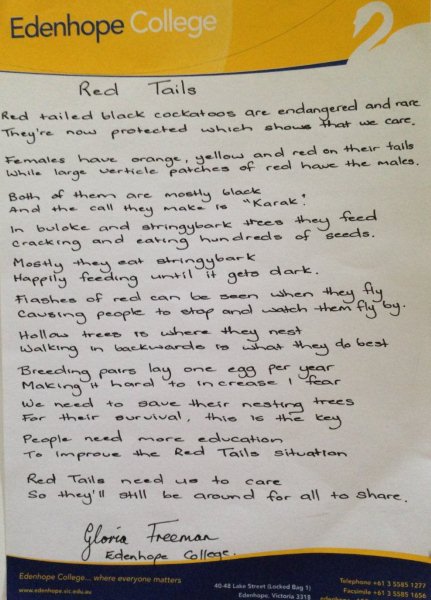 Edenhope College
Red Tails
Red tailed black cockatoos are endangered and rare
They're now protected which shows that we care.
Females have orange, yellow and red on their tails
While large verticle patches of red have the males.
Both of them are mostly black
And the call they make is "Karak".
In buloke and stringybark trees they feed
Cracking and eating hundreds of seeds.
Mostly they eat stringybark
Happily feeding until it gets dark.
Flashes of red can be seen when they fly
Causing people to stop and watch them fly by.
Hollow trees is where they nest
Walking in backwards is what they do best
Breeding pairs lay one egg per year
Making it hard to increase I fear
We need to save their nesting trees
For their survival, this is the key
People need more education
To improve the Red Tails situation
Red Tails need us to care
So they'll still be around for all to share.
Gloria Freeman
Edenhope College.
Edenhope College... where everyone matters
www.edenhope.vic.edu.au
40-48 Lake Street (Locked Bag 1)
Edenhope, Victoria 3318
Telephone +61 3 5585 1277
Facsimile +61 3 5585 1656